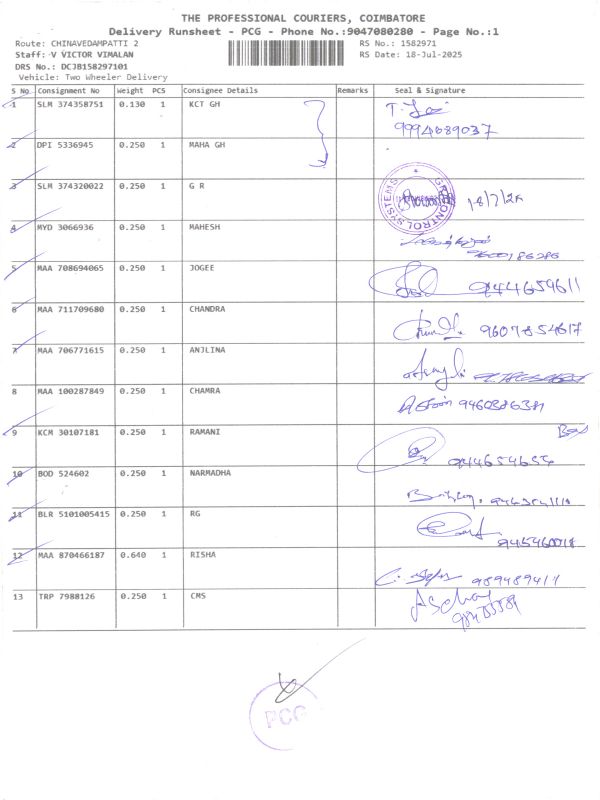 THE PROFESSIONAL COURIERS, COIMBATORE
Delivery Runsheet - PCG - Phone No.:9047080280 - Page No.:1
Route: CHINAVEDAMPATTI 2
RS No.: 1582971
Staff: V VICTOR VIMALAN
RS Date: 18-Jul-2025
DRS No.: DCJB158297101
Vehicle: Two Wheeler Delivery
S No. Consignment No Weight PCS Consignee Details Remarks Seal & Signature
1 SLM 374358751 0.130 1 KCT GH
9994089037
2 DPI 5336945 0.250 1 MAHA GH
3 SLM 374320022 0.250 1 G R
CONTROL SYSTEMS
4 MYD 3066936 0.250 1 MAHESH
9600186286
5 MAA 708694065 0.250 1 JOGEE
9444659611
6 MAA 711709680 0.250 1 CHANDRA
9607854617
7 MAA 706771615 0.250 1 ANJLINA
8 MAA 100287849 0.250 1 CHAMRA
9 KCM 30107181 0.250 1 RAMANI
10 BOD 524602 0.250 1 NARMADHA
11 BLR 5101005415 0.250 1 RG
12 MAA 870466187 0.640 1 RISHA
9894894711
13 TRP 7988126 0.250 1 CMS
PCG